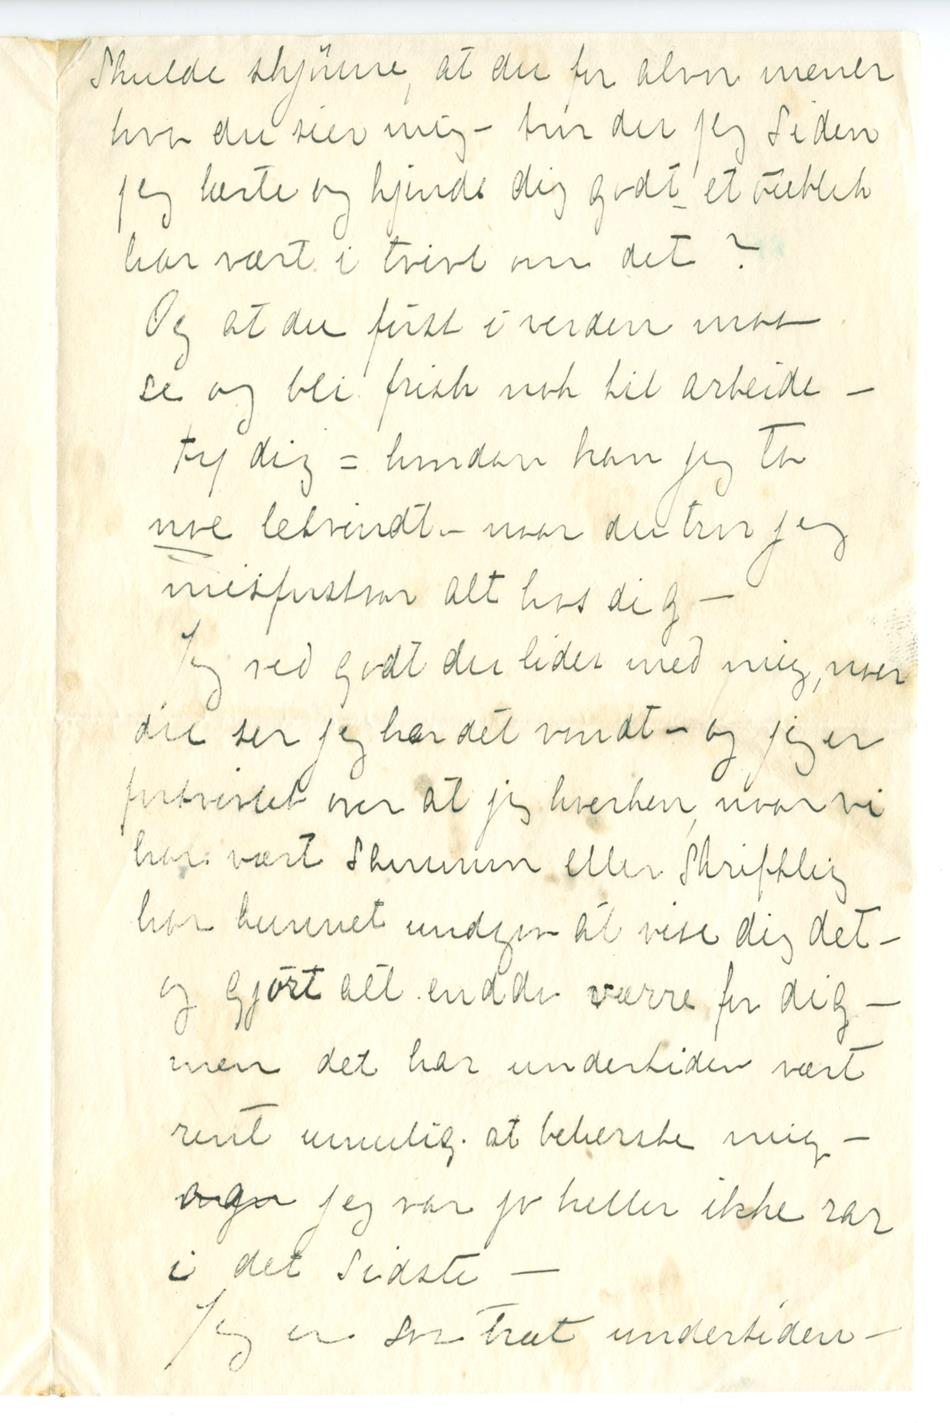 Skulde skjønne, at du for alvor mener
hva du sier mig – tror du jeg siden
jeg lærte og kjende dig godt et øieblik
har vært i tvivl om det?
Og at du først i verden maa
se og bli frisk nok til arbeide –
Ty dig = hvordan kan jeg ta
noe letvindt – naar du tror jeg
misforstaar alt hos dig –
Jeg ved godt du lider med mig, naar
du ser jeg har det vondt – og jeg er
fortvivlet over at jeg hverken, naar vi
har vært sammen eller skriftlig
har kunnet undgaa at vise dig det –
og gjort alt endda værre for dig –
men det har undertiden vært
rent umulig at beherske mig –
jeg var jo heller ikke rar
i det sidste –
Jeg er saa træt undertiden –